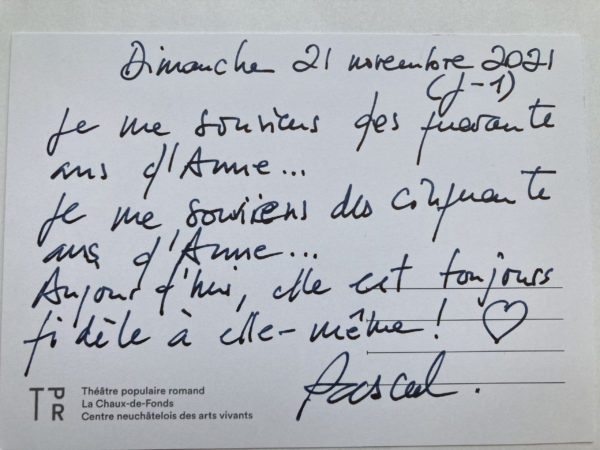 Dimanche 21 novembre 2021
(J-1)
Je me souviens des quarante
ans d'Anne...
Je me souviens des cinquante
ans d'Anne...
Aujourd'hui, elle est toujours
fidèle à elle-même! ♡
Pascal.
TPR
Théâtre populaire romand
La Chaux-de-Fonds
Centre neuchâtelois des arts vivants